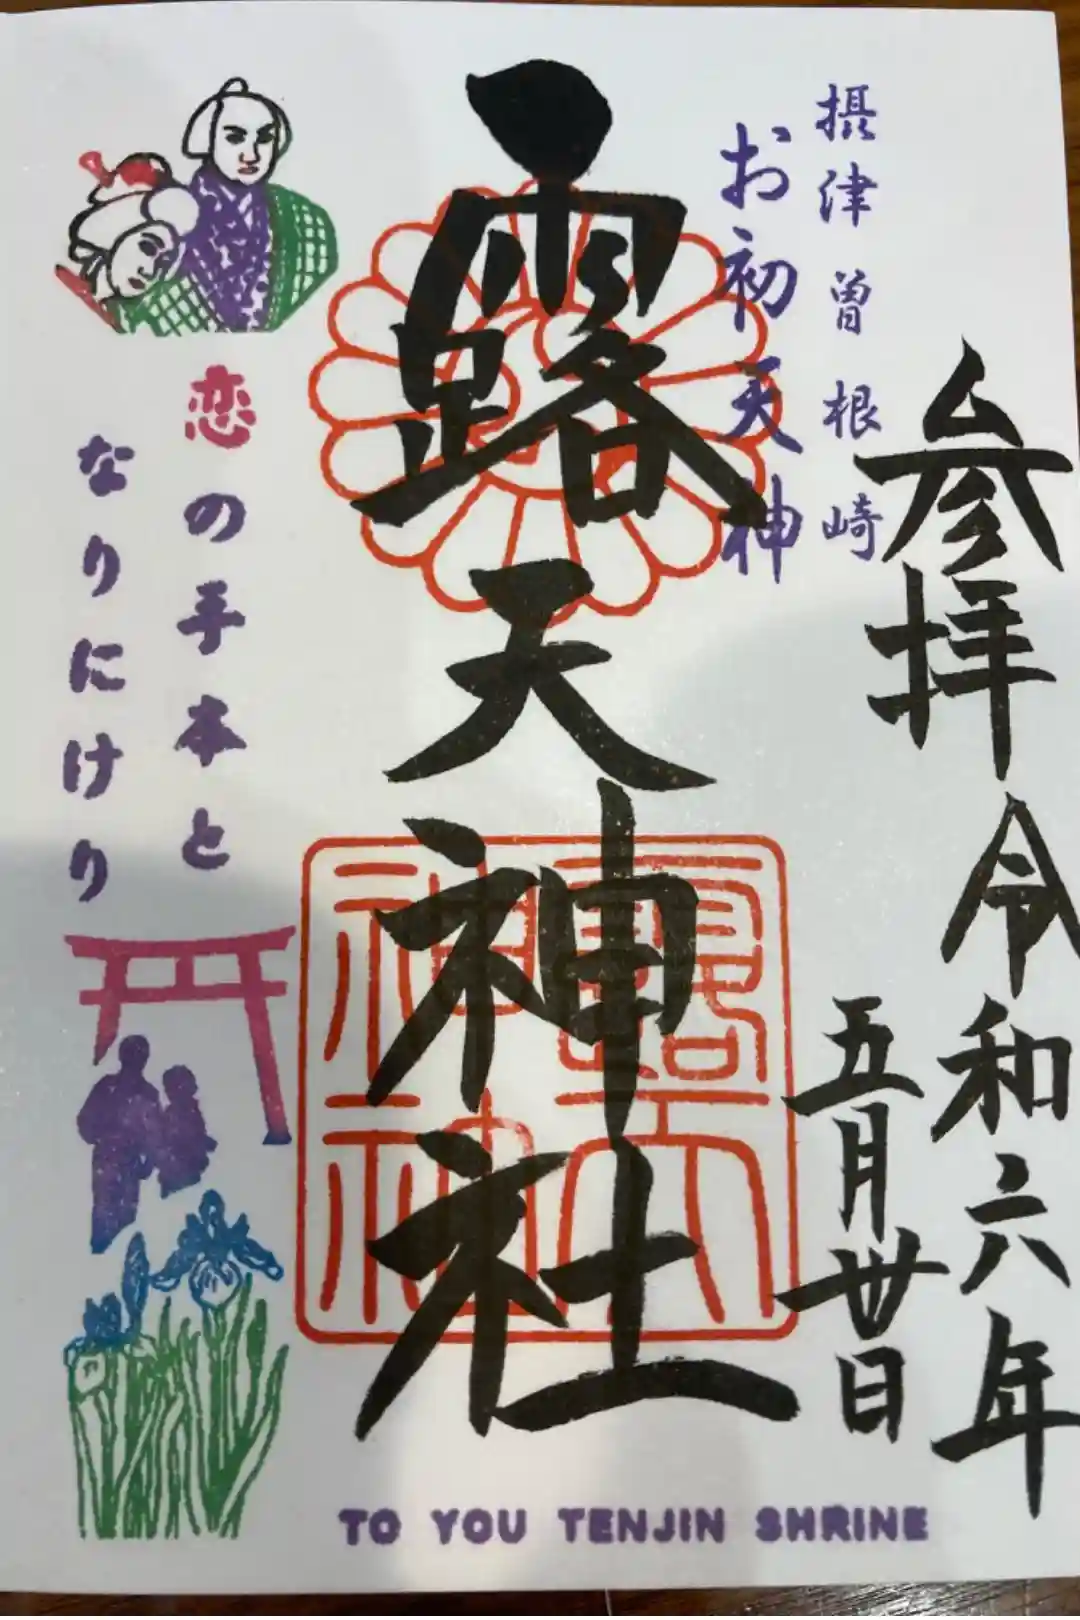 参拝 令和六年
五月卅日
摂津曽根崎
お初天神
露天神社
露天
神社
恋の手本と
なりにけり
TO YOU TENJIN SHRINE